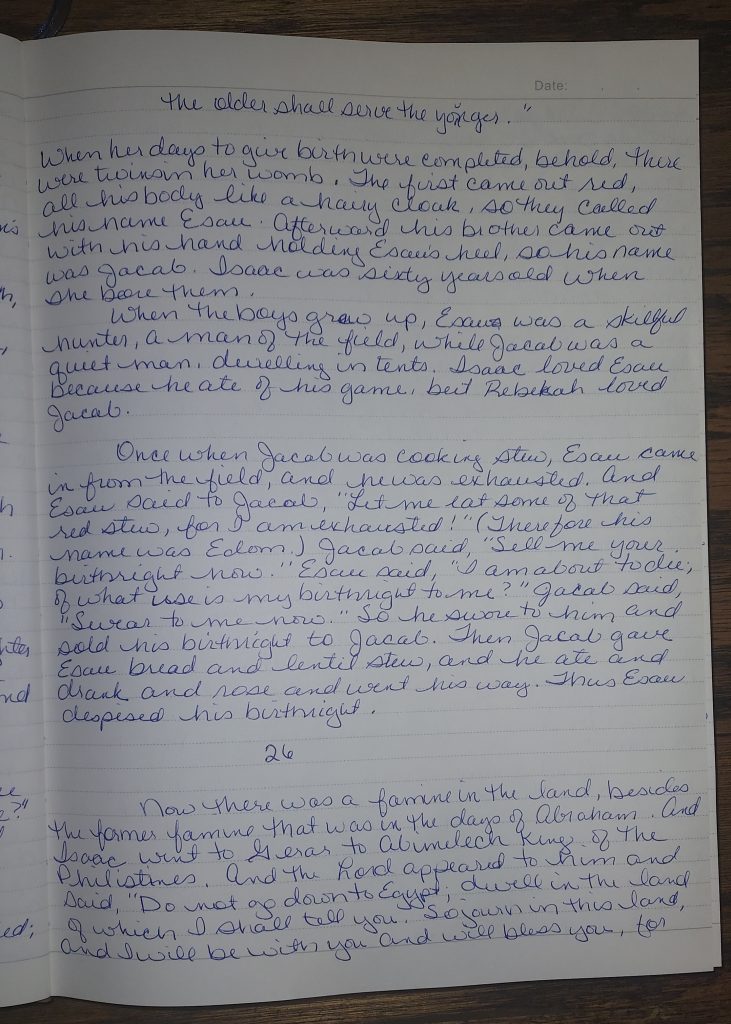 Date:
the older shall serve the yonger."
When her days to give birth were completed, behold, there
were twins in her womb. The first came out red,
all his body like a hairy cloak, so they called
his name Esau. Afterward his brother came out
with his hand holding Esau's heel, so his name
was Jacob. Isaac was sixty years old when
she bore them.
When the boys grew up, Esau was a skilful
hunter, a man of the field, while Jacob was a
quiet man, dwelling in tents. Isaac loved Esau
because he ate of his game, but Rebekah loved
Jacob.
Once when Jacob was cooking stew, Esau came
in from the field, and he was exhausted. And
Esau said to Jacob, "Let me eat some of that
red stew, for I am exhausted!" (Therefore his
name was Edom.) Jacob said, "Sell me your
birthright now." Esau said, "I am about to die;
of what use is my birthright to me?" Jacob said,
"Swear to me now." So he swore to him and
sold his birthright to Jacob. Then Jacob gave
Esau bread and lentil stew, and he ate and
drank and rose and went his way. Thus Esau
despised his birthright.
26
Now there was a famine in the land, besides
the former famine that was in the days of Abraham. And
Isaac went to Gerar to Abimelech King of the
Philistines. And the Lord appeared to him and
said, "Do not go down to Egypt; dwell in the land
of which I shall tell you. Sojourn in this land,
and I will be with you and will bless you, for